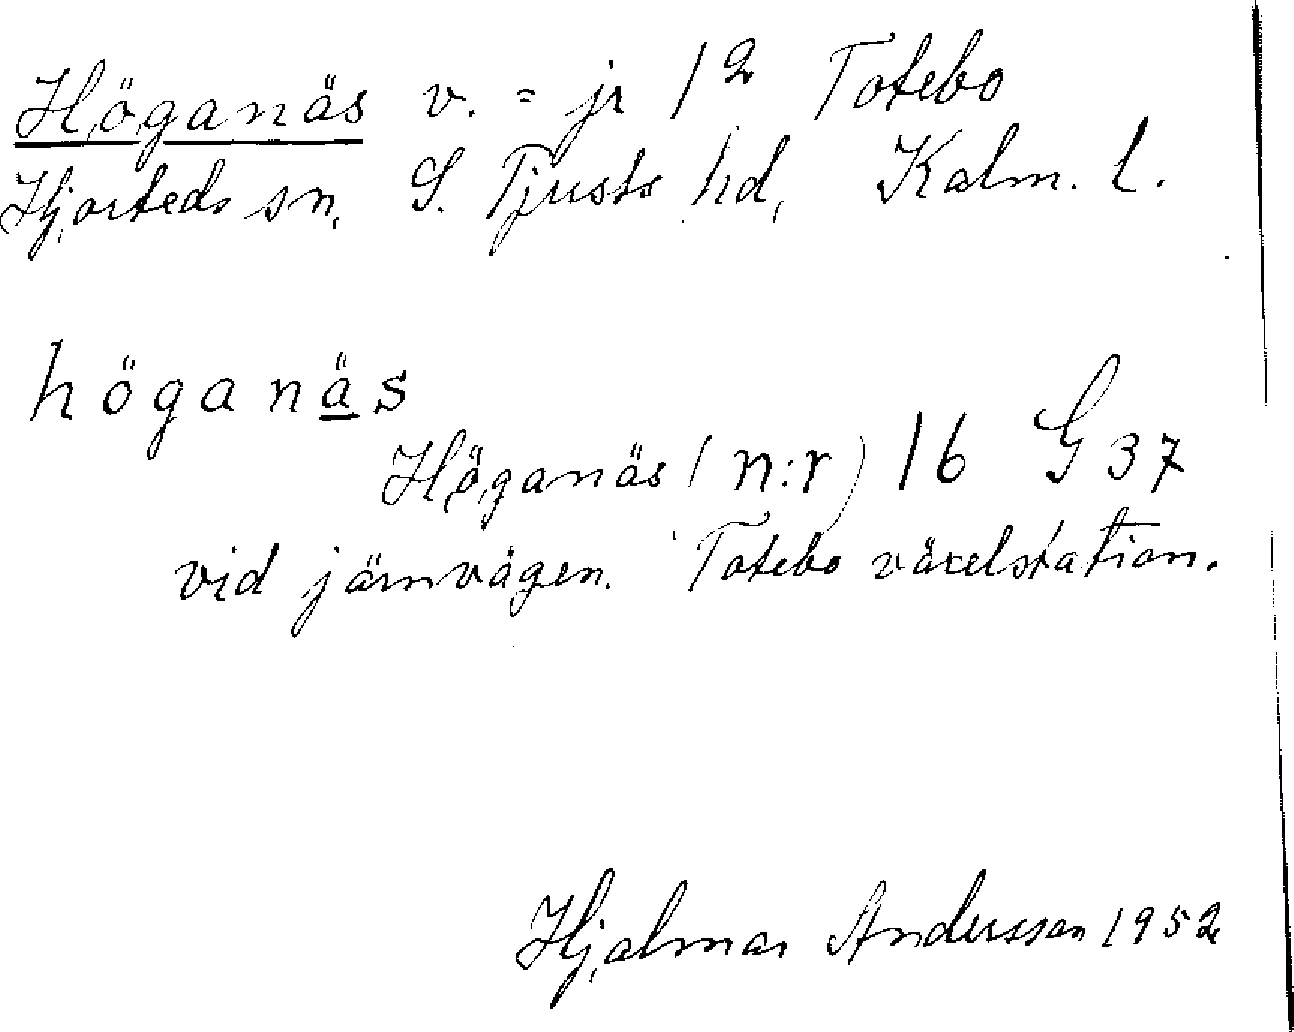 Höganäs v. = jr 1² Totebo
Hjorteds sn. S. Tjusts hd, Kalm. l.
höganäs
Höganäs (n:r) 16 G 37
vid järnvägen. Totebo växelstation.
Hjalmar Andersson 1952